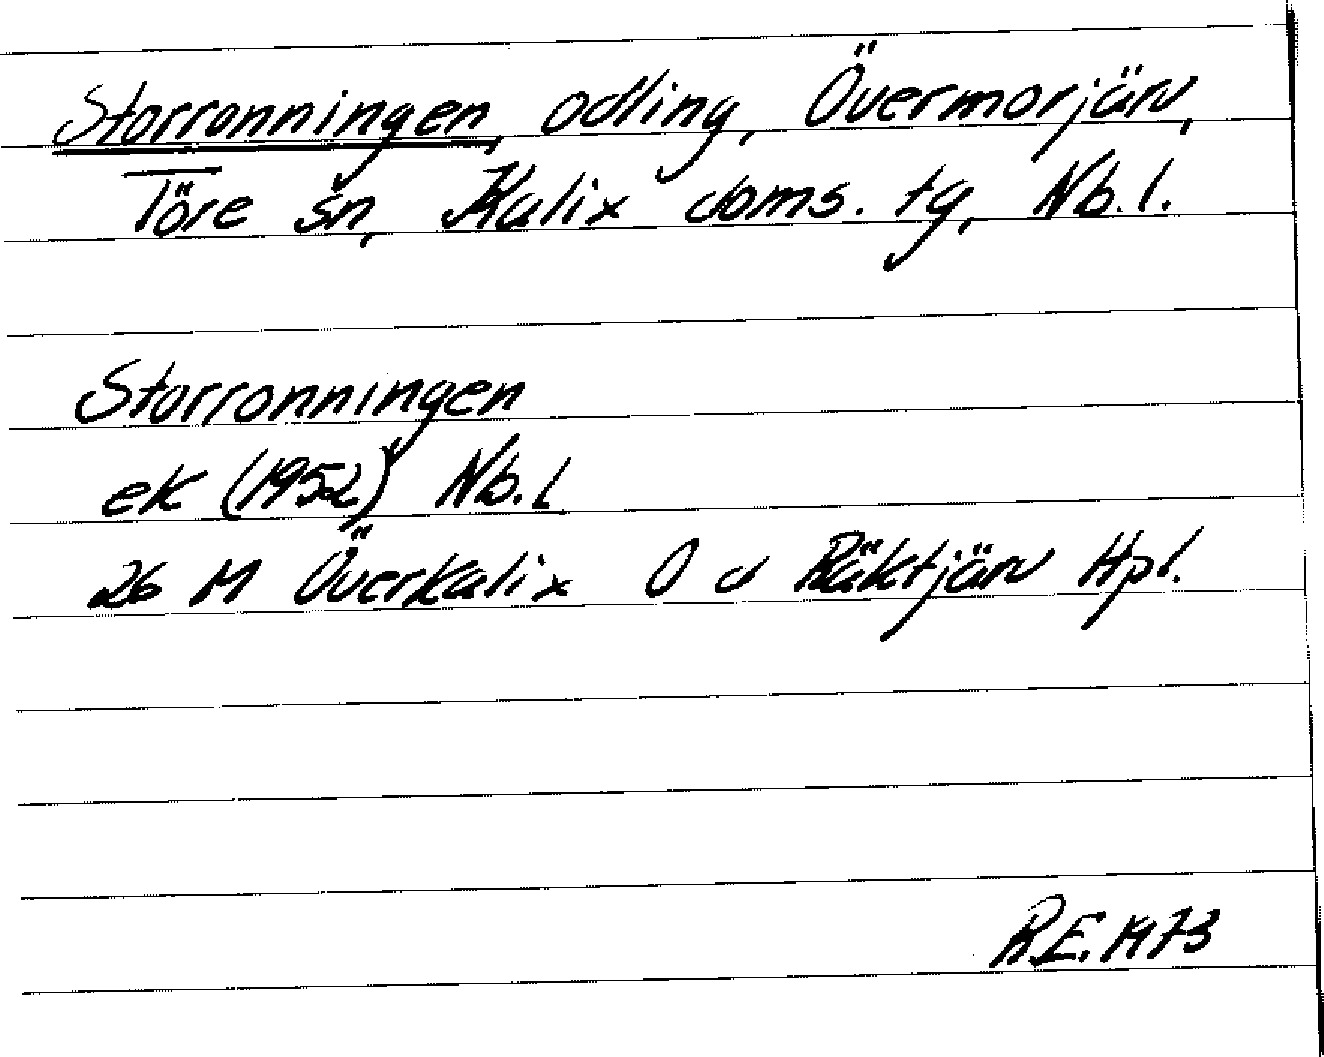 Storronningen, odling, Övermorjärv,
Töre sn, Kalix doms. tg, Nb.l.
Storronningen
ek (1952) Nb.l
26 M Överkalix O v Räktjärv Hpl.
R.E. 1973